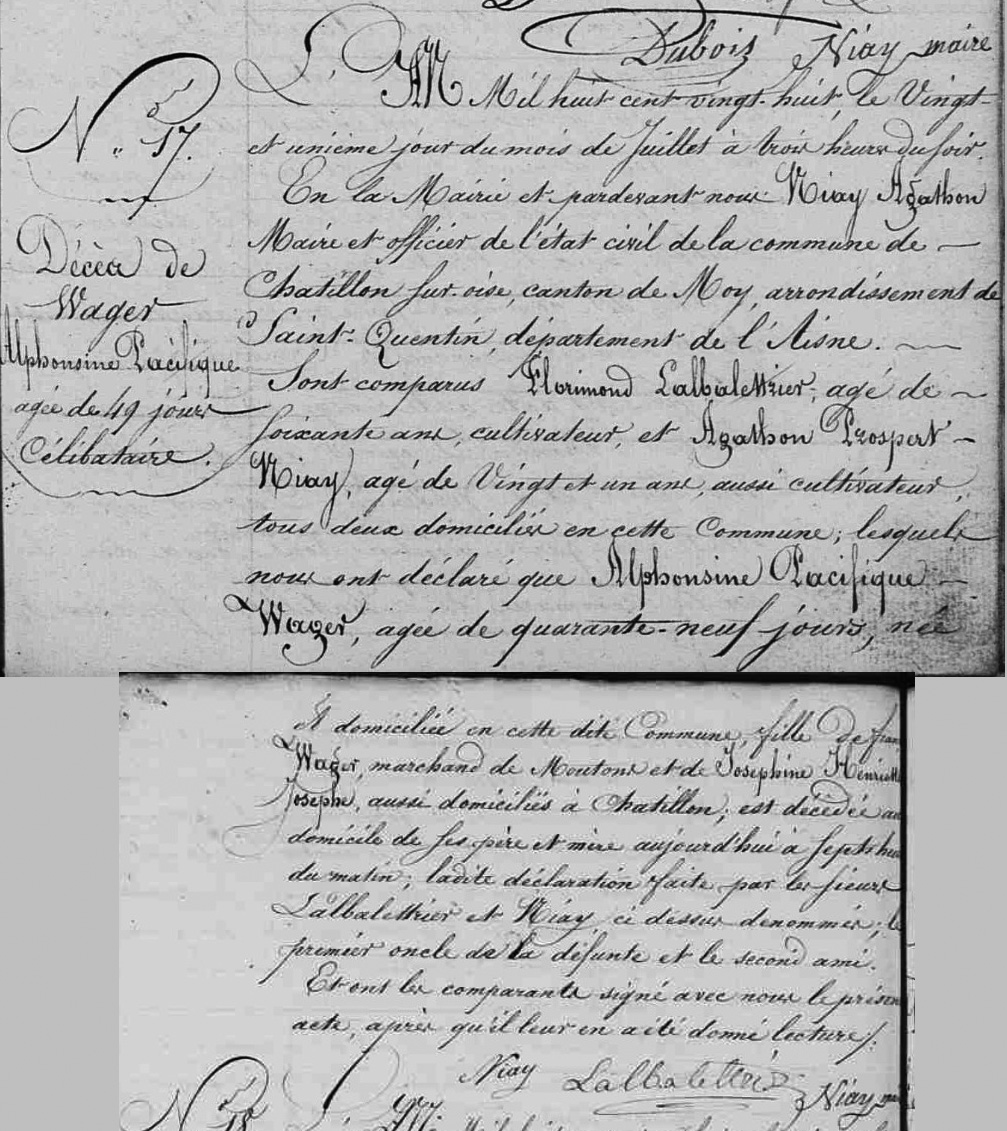 Dubois Niay maire
N.° 17.
Décès de
Wager
Alphonsine Pacifique
agée de 49 jours
Célibataire.
L'AN Mil huit cent vingt-huit, le Vingt-
et unième jour du mois de Juillet à trois heures du soir.
En la Mairie et pardevant nous Niay Agathon
Maire et officier de l'état civil de la commune de —
Chatillon sur-oise, canton de Moy, arrondissement de
Saint-Quentin, département de l'Aisne.
Sont comparus Florimond Lalbalettrier, agé de ~
soixante ans, cultivateur, et Agathon Prospert —
Niay, agé de Vingt et un ans, aussi cultivateur,
tous deux domiciliés en cette Commune; lesquels
nous ont déclaré que Alphonsine Pacifique —
Wager, agée de quarante-neuf jours, née
Et domiciliée en cette dite Commune, fille de
Wager, marchand de Moutons et de Josephine
Josephe, aussi domiciliés à Chatillon; est décédée au
domicile de ses père et mère aujourd'hui à sept
du matin; ladite déclaration faite par les sieurs
Lalbalettrier et Niay, ci dessus denommés; le
premier oncle de la défunte et le second ami.
Et ont les comparants signé avec nous le présen
acte, après qu'il leur en a été donné lecture ./.
Niay Lalbalettrier Niay
N.° 18
L'AN Mil huit cent